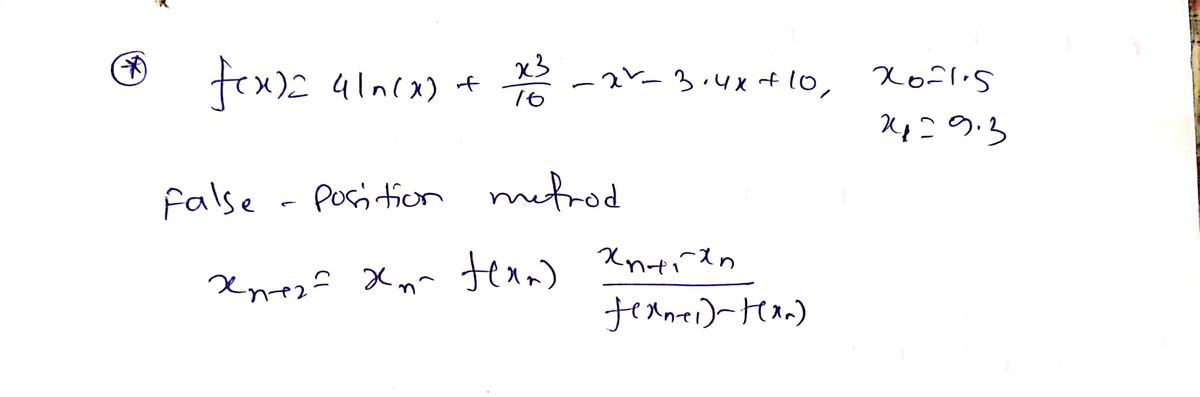 ⊛ f(x) = 4ln(x) + x³/10 - x² - 3.4x + 10, x₀ = 1.5
x₁ = 9.3
False - Position method
xₙ₊₂ = xₙ - f(xₙ) (xₙ₊₁ - xₙ)/(f(xₙ₊₁) - f(xₙ))